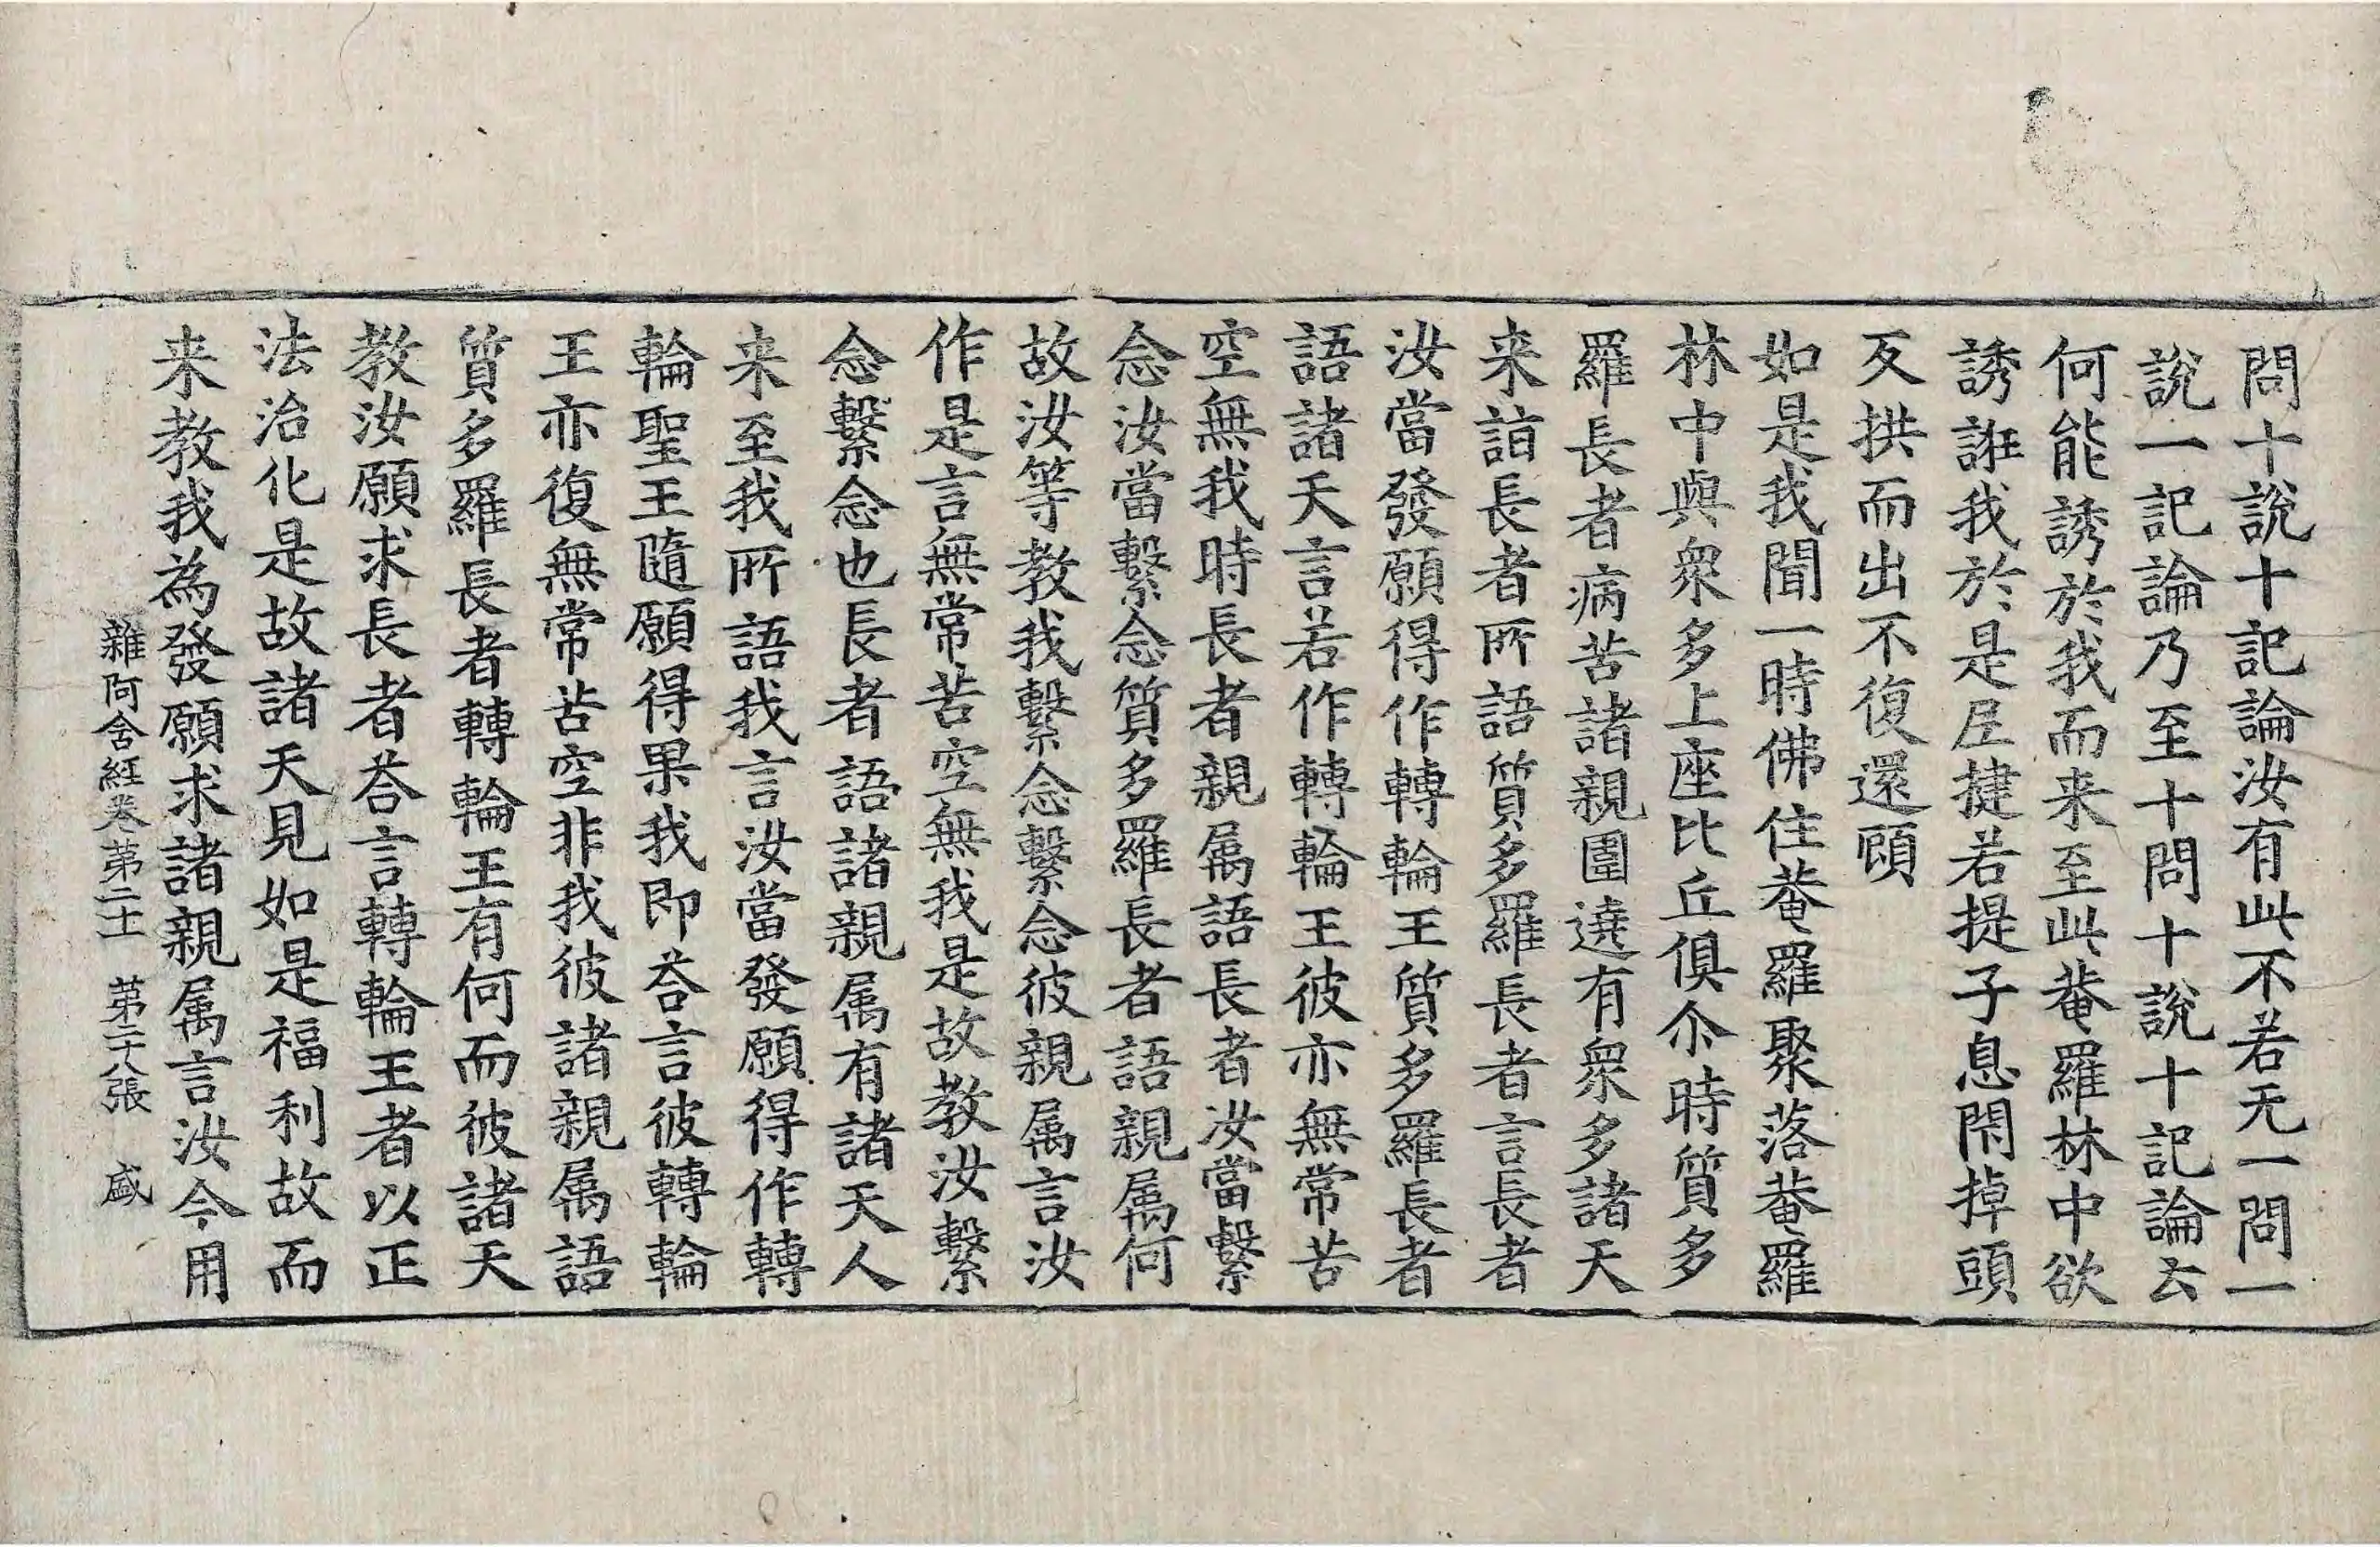 問十說十記論汝有此不若无一問一
說一記論乃至十問十說十記論云
何能誘於我而来至此菴羅林中欲
誘誑我於是𡰱揵若提子息閇掉頭
反拱而出不復還顧
如是我聞一時佛住菴羅聚落菴羅
林中與衆多上座比丘俱尒時質多
羅長者病苦諸親圍遶有衆多諸天
来詣長者所語質多羅長者言長者
汝當發願得作轉輪王質多羅長者
語諸天言若作轉輪王彼亦無常苦
空無我時長者親属語長者汝當繫
念汝當繫念質多羅長者語親属何
故汝等教我繫念繫念彼親属言汝
作是言無常苦空無我是故教汝繫
念繫念也長者語諸親属有諸天人
来至我所語我言汝當發願得作轉
輪聖王隨願得果我即荅言彼轉輪
王亦復無常苦空非我彼諸親属語
質多羅長者轉輪王有何而彼諸天
教汝願求長者荅言轉輪王者以正
法治化是故諸天見如是福利故而
来教我為發願求諸親属言汝今用
雜阿含経卷第二十一 第二十八張 盛